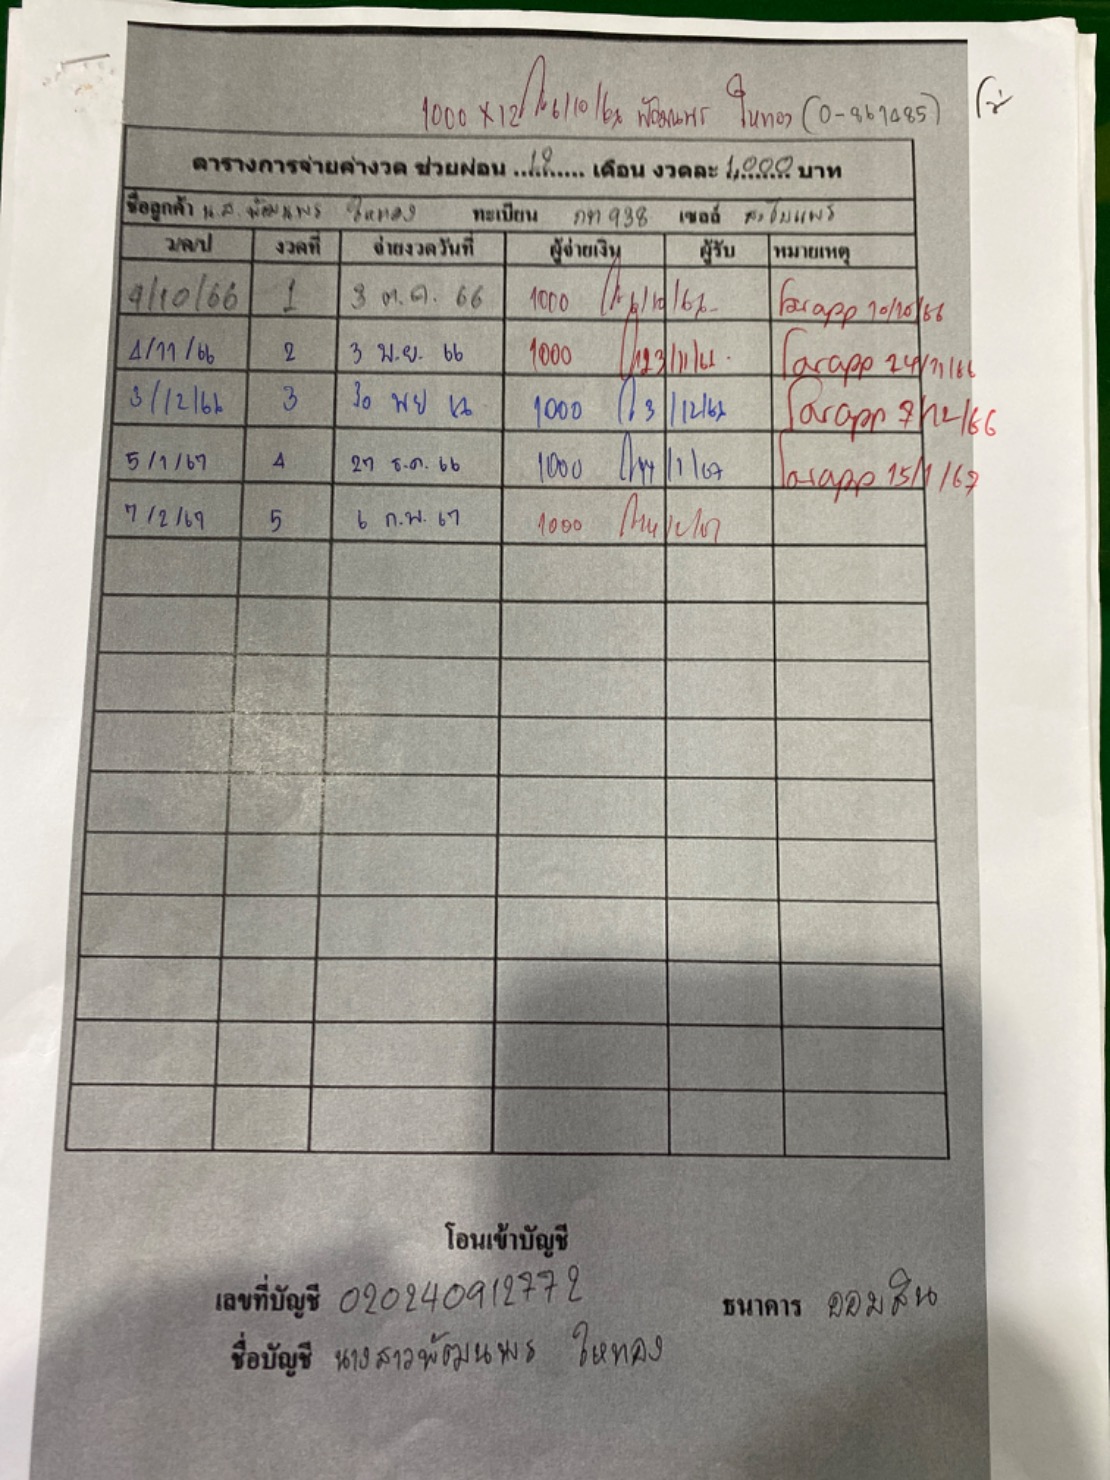 1000 x 12 6/10/66 พัฒนพร ใหทอง (0-867485)
ตารางการจ่ายค่างวด ช่วยผ่อน ...12...... เดือน งวดละ 1,000 บาท
ชื่อลูกค้า น.ส. พัฒนพร ใหทอง ทะเบียน กท 938 เซลล์
ว/ด/ป งวดที่ จ่ายงวดวันที่ ผู้จ่ายเงิน ผู้รับ หมายเหตุ
9/10/66 1 3 ต.ค. 66 1000 app 10/10/66
4/11/66 2 3 พ.ย. 66 1000 23/11/66 app 24/11/66
3/12/66 3 30 พย 66 1000 3/12/66 app 7/12/66
5/1/67 4 27 ธ.ค. 66 1000 /1/67 app 15/1/67
7/2/67 5 6 ก.พ. 67 1000
โอนเข้าบัญชี
เลขที่บัญชี 020240912772 ธนาคาร ออมสิน
ชื่อบัญชี นางสาวพัฒนพร ใหทอง